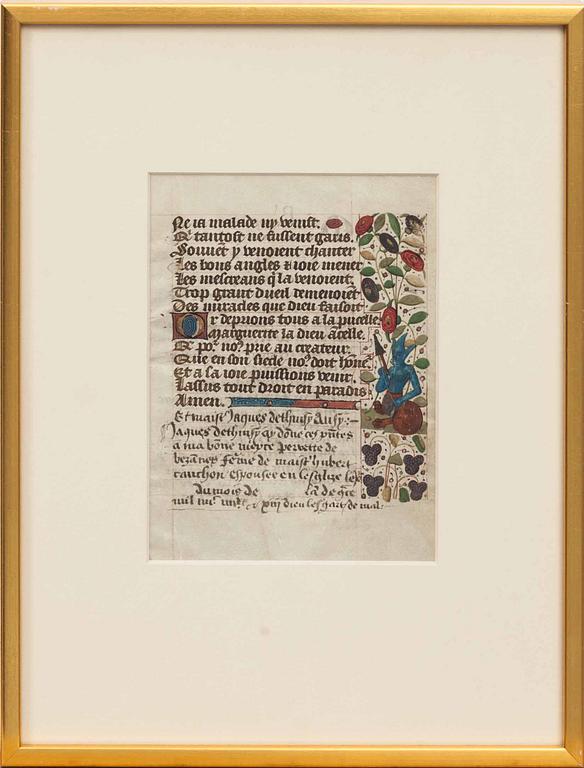 Ne la malade ny venist.
Et tantost ne fussent garis.
Souuēt y venoient chanter
Les bons angles & ioie mener
Les mescreans q̄ la venoient.
Trop grant dueil demenoiēt.
Des miracles que dieu faisoit
Or deprions tous a la pucelle.
Marguerite la dieu ācelle.
Q̄ poꝰ noꝰ prie au createur.
Que en son siecle noꝰ doit hōne
Et a la ioie puissions venir.
Lassus tout droit en paradis
Amen.
Et maist Jaques dethuisy
Jaques dethuisy q̄ dōne ces
a ma bōne mere perrette de
bezānes fēme de maist hubert
cauchon espousee en lesglize
du mois de la de
mil dieu les gart de mal.